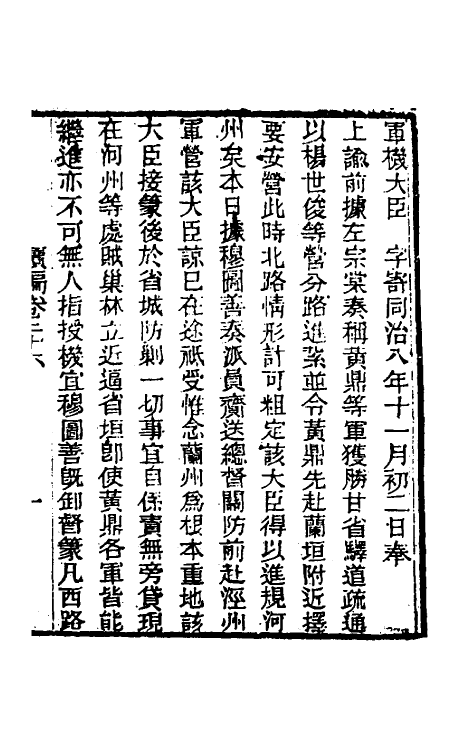 軍機大臣　字寄同治八年十一月初二日奉
上諭前據左宗棠奏稱黃鼎等軍獲勝甘省驛道疏通
以楊世俊等營分路進紮並令黃鼎先赴蘭垣附近擇
要安營此時北路情形計可粗定該大臣得以進規河
州矣本日據穆圖善奏派員齎送總督關防前赴涇州
軍營該大臣諒已在途祇受惟念蘭州爲根本重地該
大臣接篆後於省城防剿一切事宜自係責無旁貸現
在河州等處賊巢林立近逼省垣卽使黃鼎各軍皆能
繼進亦不可無人指授機宜穆圖善旣卸督篆凡西路
續編卷三十六
一